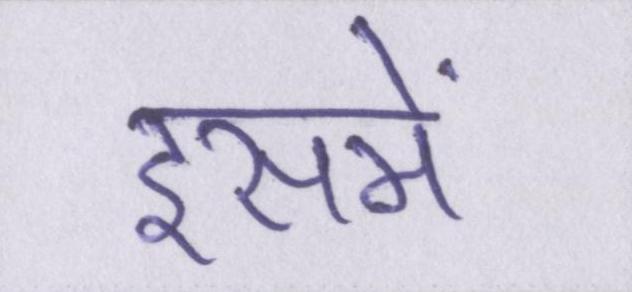 इसमें